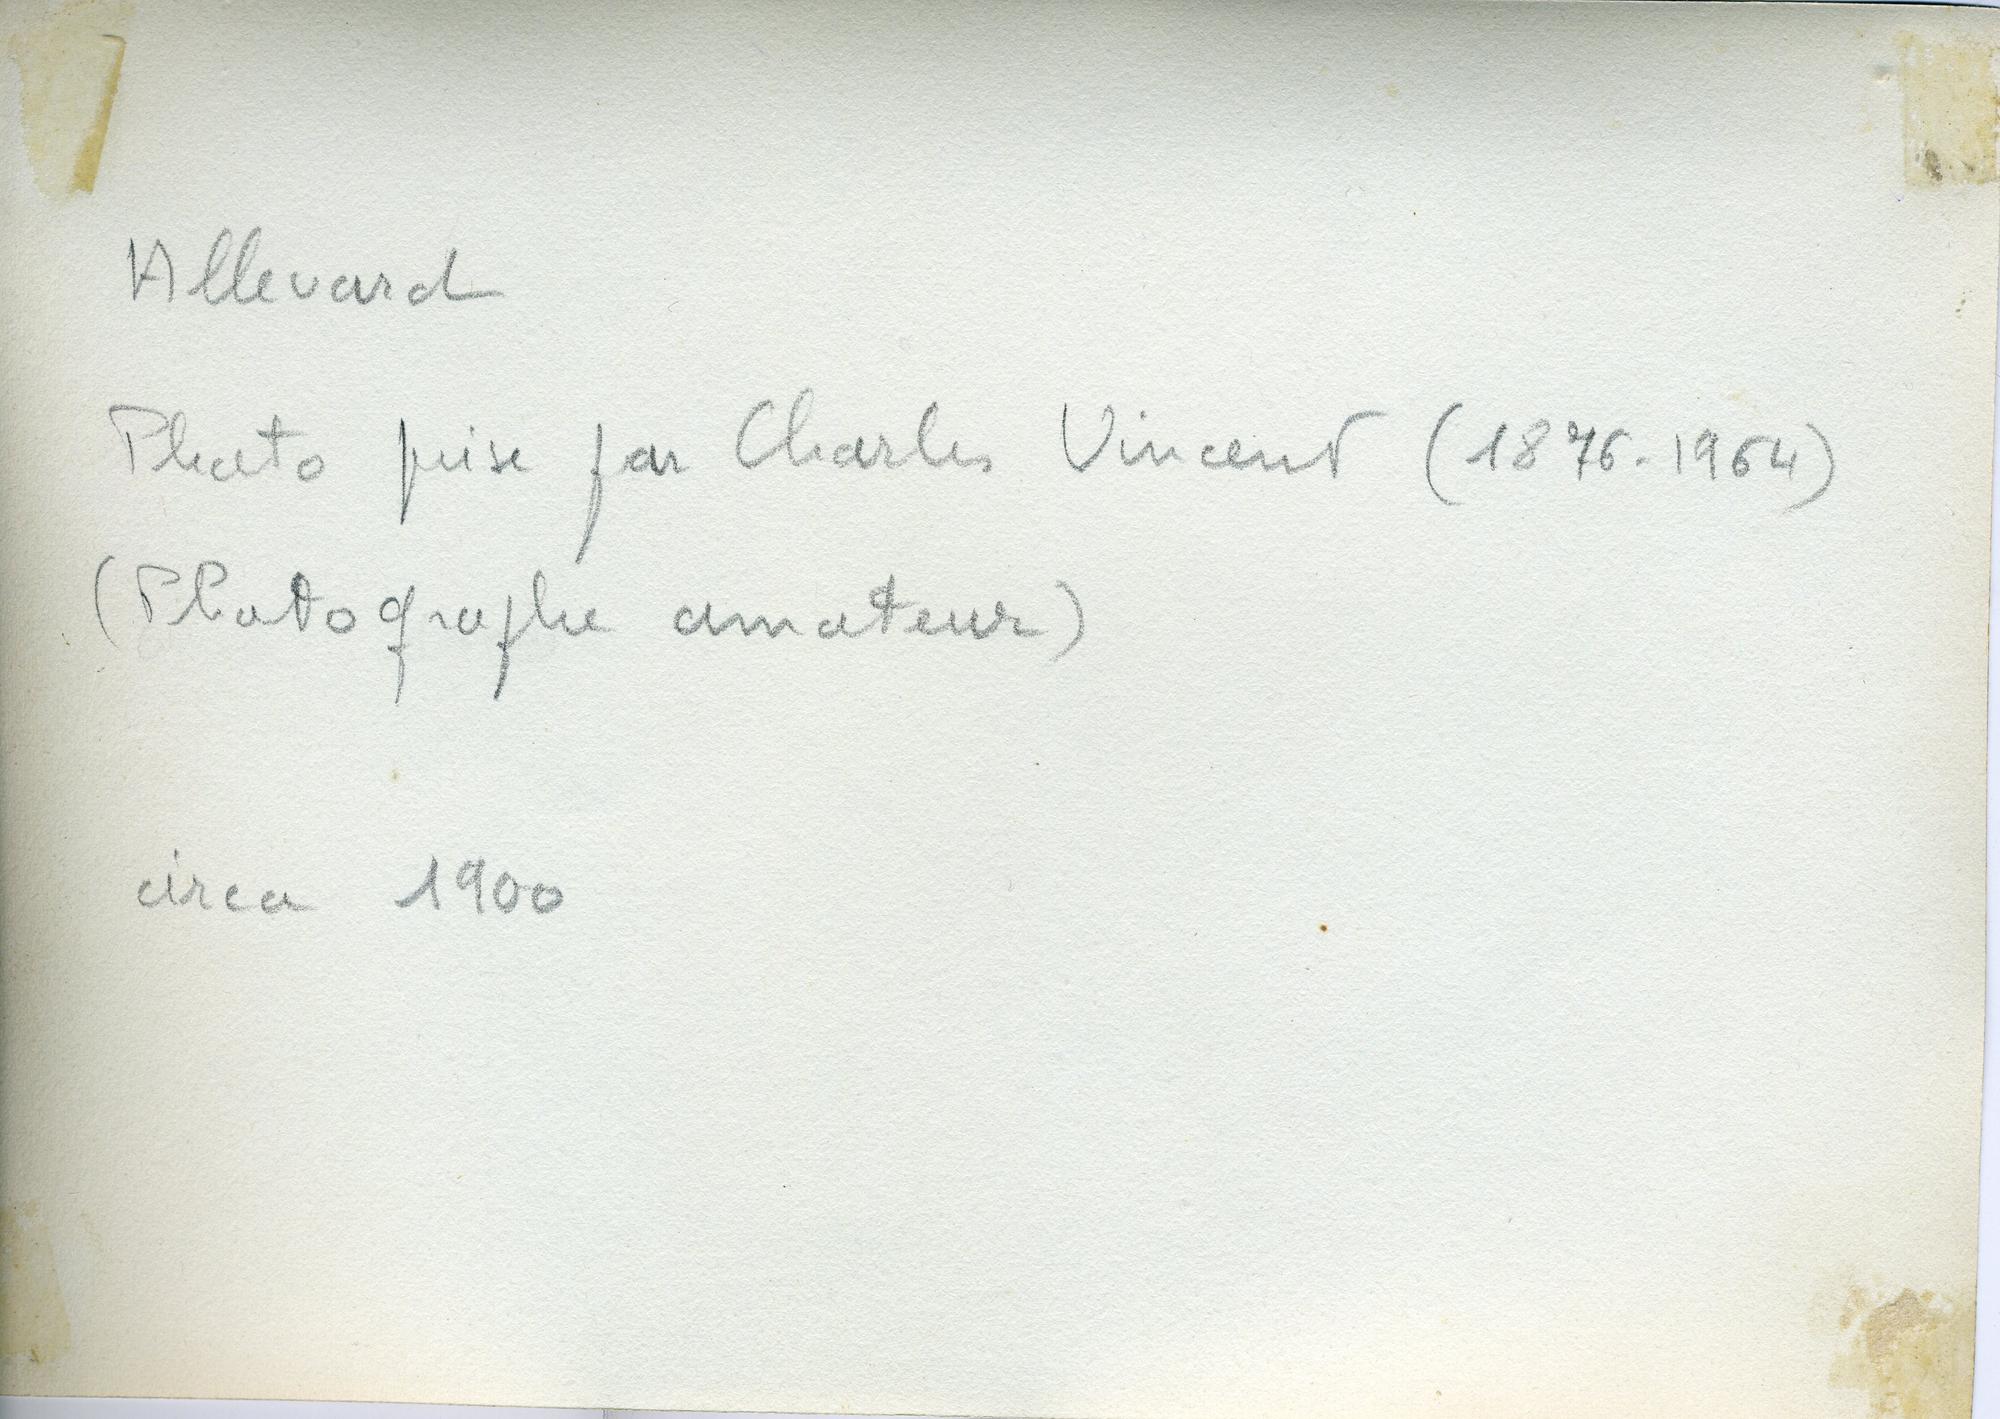 Allevard
Photo prise par Charles Vincent (1876-1964)
(Photographe amateur)
circa 1900